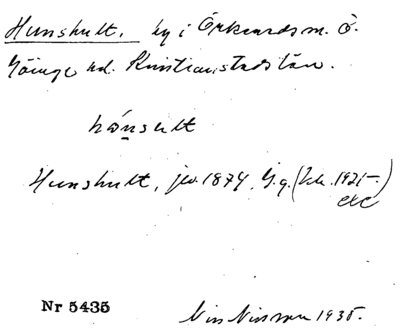 Hunshult. by i Örkeneds sn. Ö.
Göinge hd. Kristianstads län.
hönsult
Hunshult, jv. 1874, G.g. (Tab. 1921-
etc)
Nr 5435
Nils Nilsson 1935.